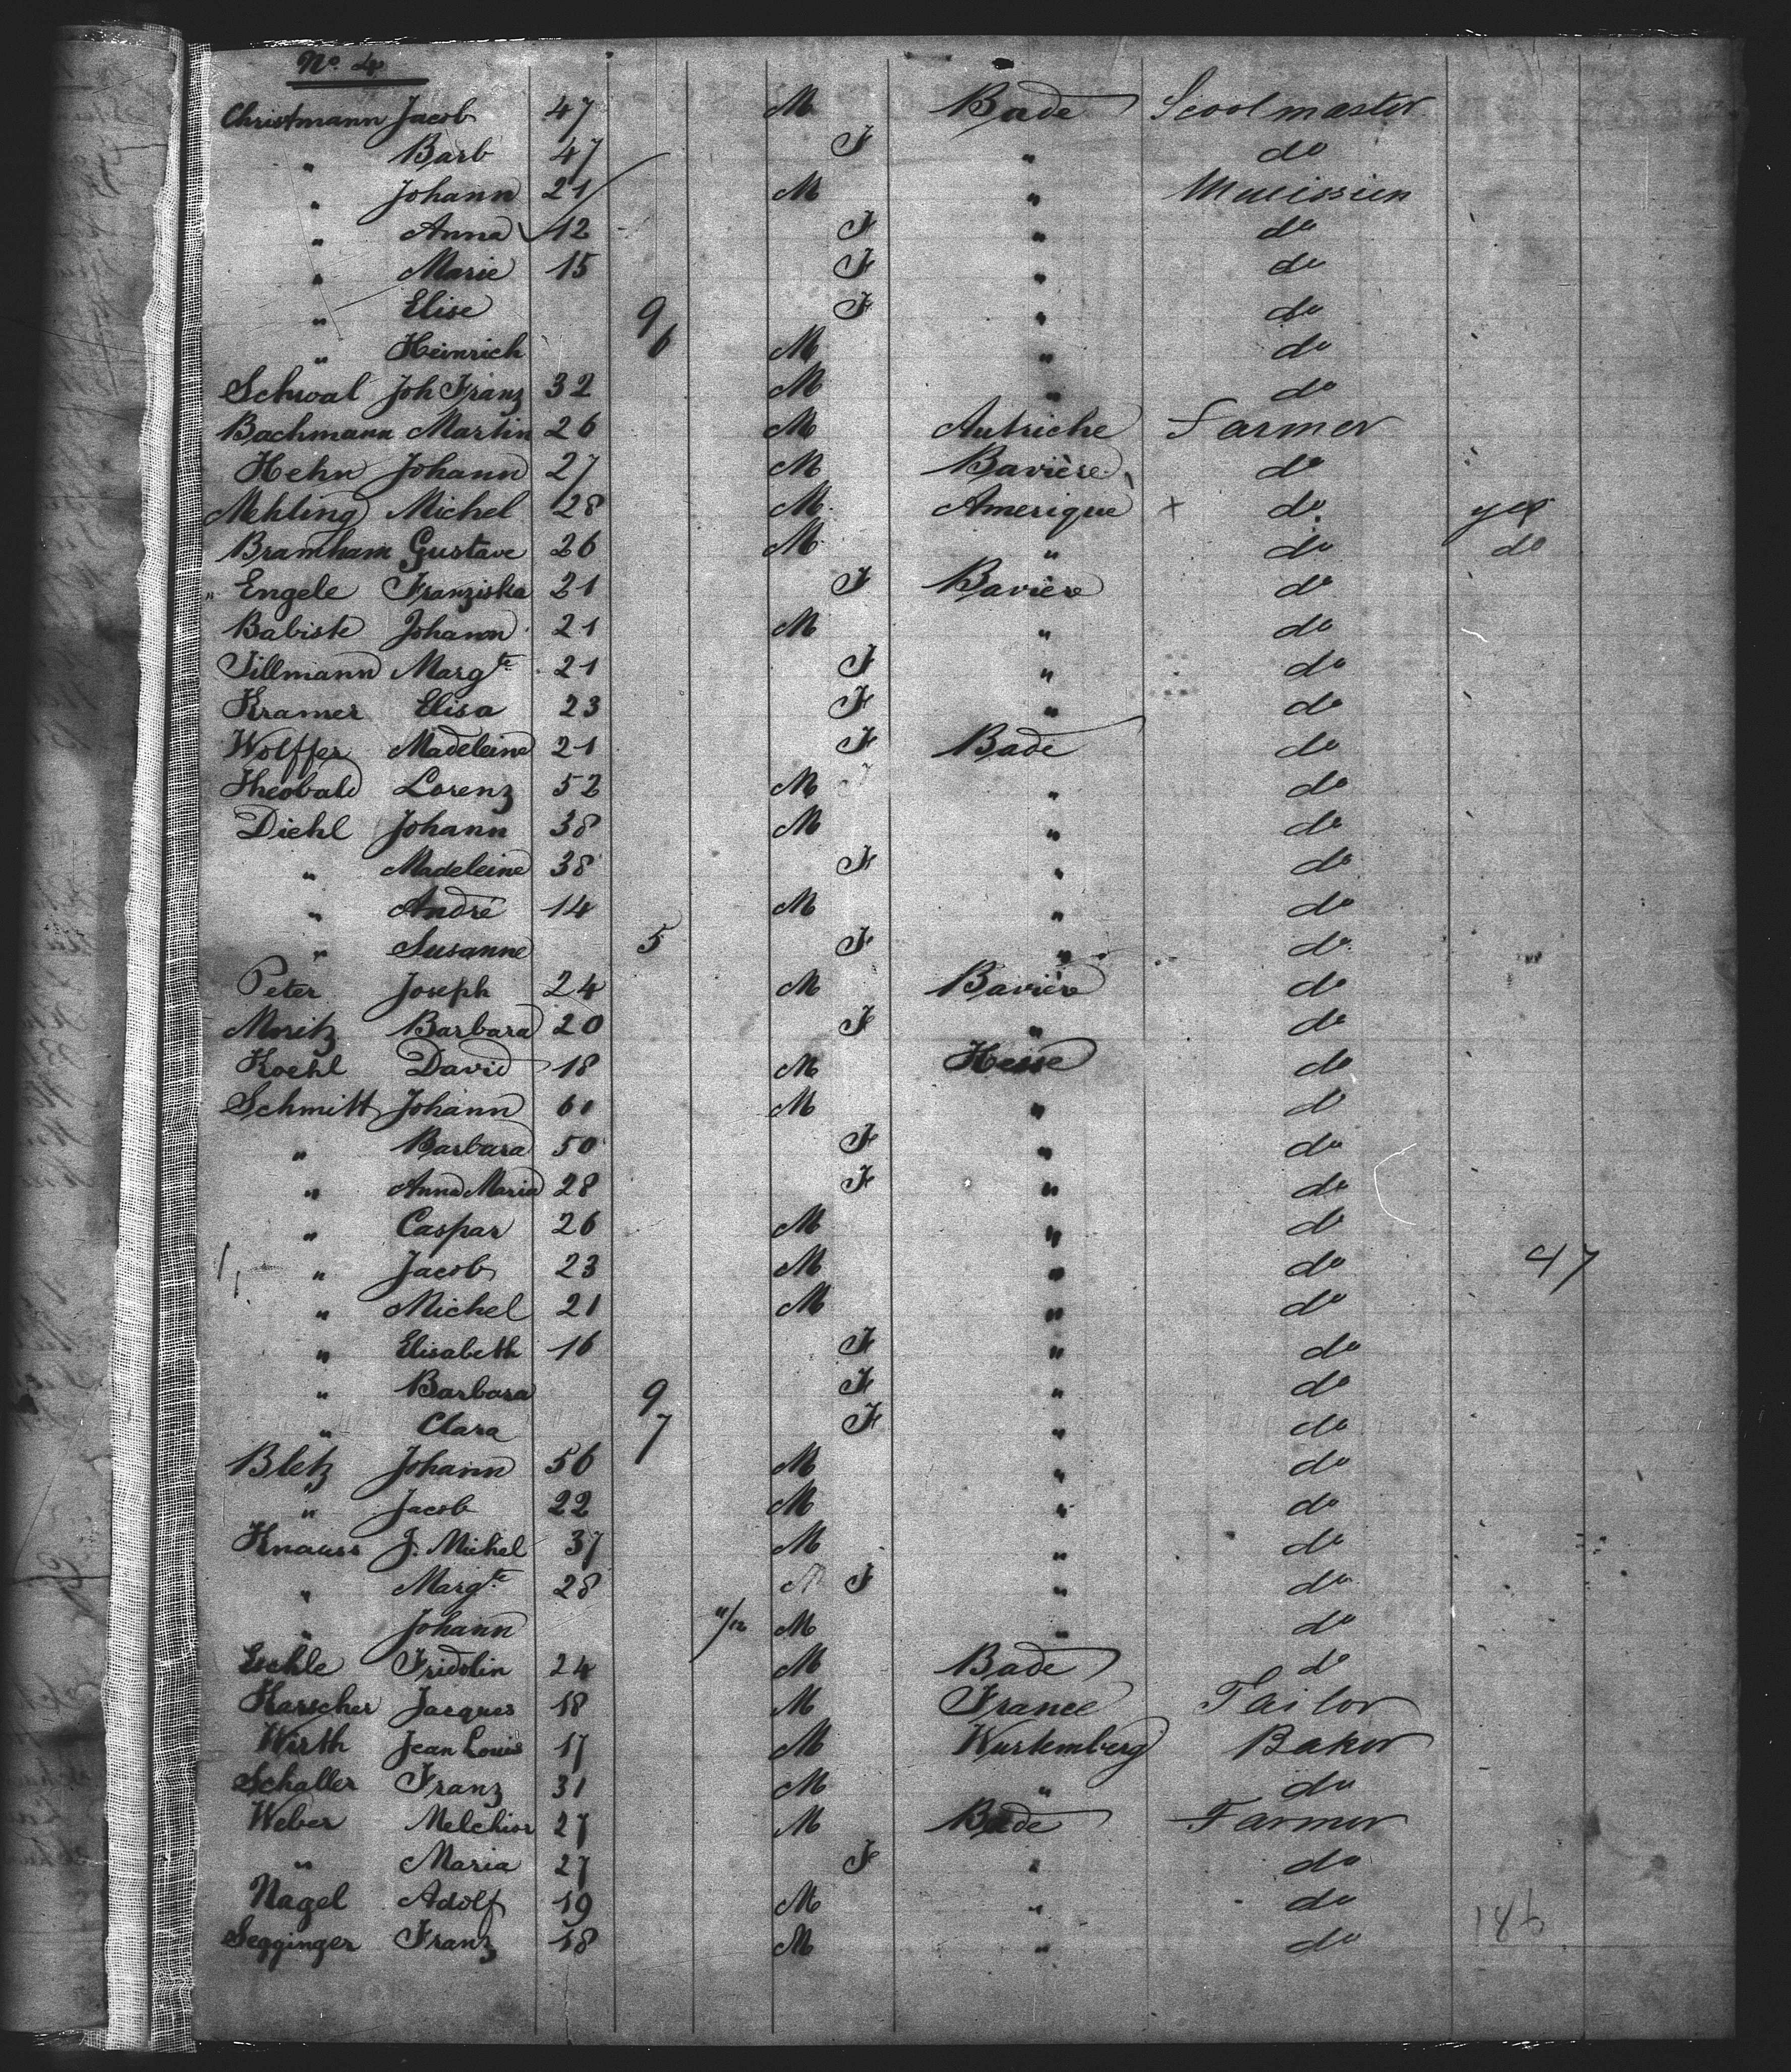 No. 4
Christmann Jacob 47 M Bade Scoolmaster
" Barb 47 F " do
" Johann 21 M "
" Anna 12 F " do
" Marie 15 F " do
" Elise 9 F " do
" Heinrich 6 M " do
Schwal Joh Franz 32 M " do
Bachmann Martin 26 M Autriche Farmer
Hehn Johann 27 M Bavière do
Mehling Michel 28 M Amerique x do yes
Bramham Gustave 26 M " do do
" Engele Franziska 21 F Bavière do
Babiste Johann 21 M " do
Tillmann Margte 21 F " do
Kramer Elisa 23 F " do
Wolffer Madeleine 21 F Bade do
Theobald Lorenz 52 M " do
Diehl Johann 38 M " do
" Madeleine 38 F " do
" André 14 M " do
" Susanne 5 F " do
Peter Joseph 24 M Bavière do
Moritz Barbara 20 F " do
Koehl David 18 M Hesse do
Schmitt Johann 61 M " do
" Barbara 50 F " do
" Anna Maria 28 F " do
" Caspar 26 M " do
" Jacob 23 M " do 47
" Michel 21 M " do
" Elisabeth 16 F " do
" Barbara 9 F " do
" Clara 7 F " do
Bletz Johann 56 M " do
" Jacob 22 M " do
Knauss J. Michel 37 M " do
" Margte 28 F " do
" Johann 11/12 M " do
Eschle Fridolin 24 M Bade do
Harscher Jacques 18 M France Tailor
Wirth Jean Louis 17 M Wurtemberg Baker
Schaller Franz 31 M " do
Weber Melchior 27 M Bade Farmer
" Maria 27 F " do
Nagel Adolf 19 M " do
Segginger Franz 18 M " do
186